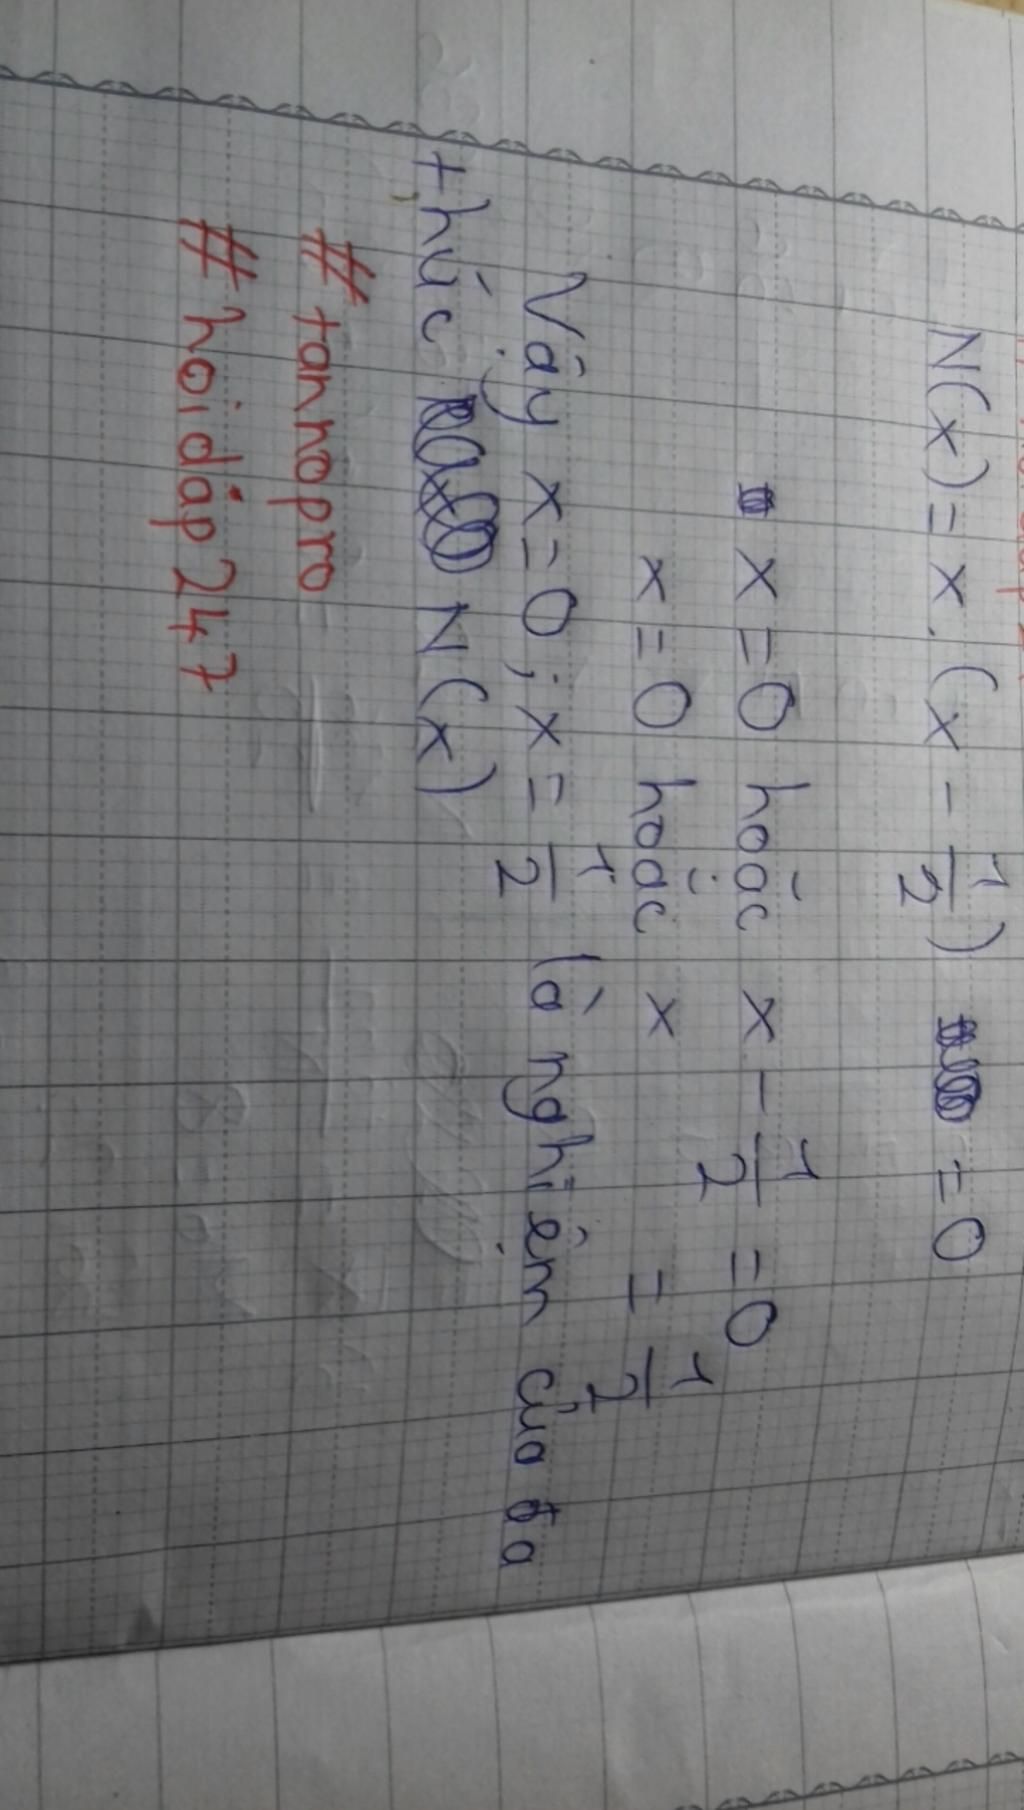 N(x) = x. (x - 1/2) = 0
x = 0 hoặc x - 1/2 = 0
x = 0 hoặc x = 1/2
Vậy x = 0 ; x = 1/2 là nghiệm của đa
thức N(x)
# tannopro
# hoidáp 247